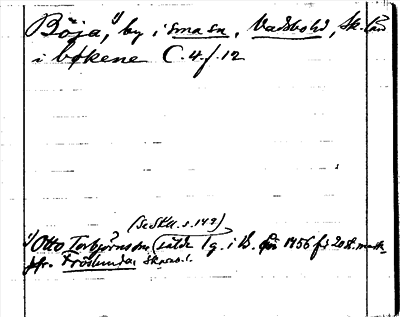 Böja,¹⁾ by i sma sn, Vadsbohd, Sk. län
i bökene C.4.f.12
(Se SKu. s. 149)
¹⁾ Otto Torbjörnsson sålde 1 g. i B. 1456 för 20 st. mark
jfr. Fröslunda, Skarab. l.